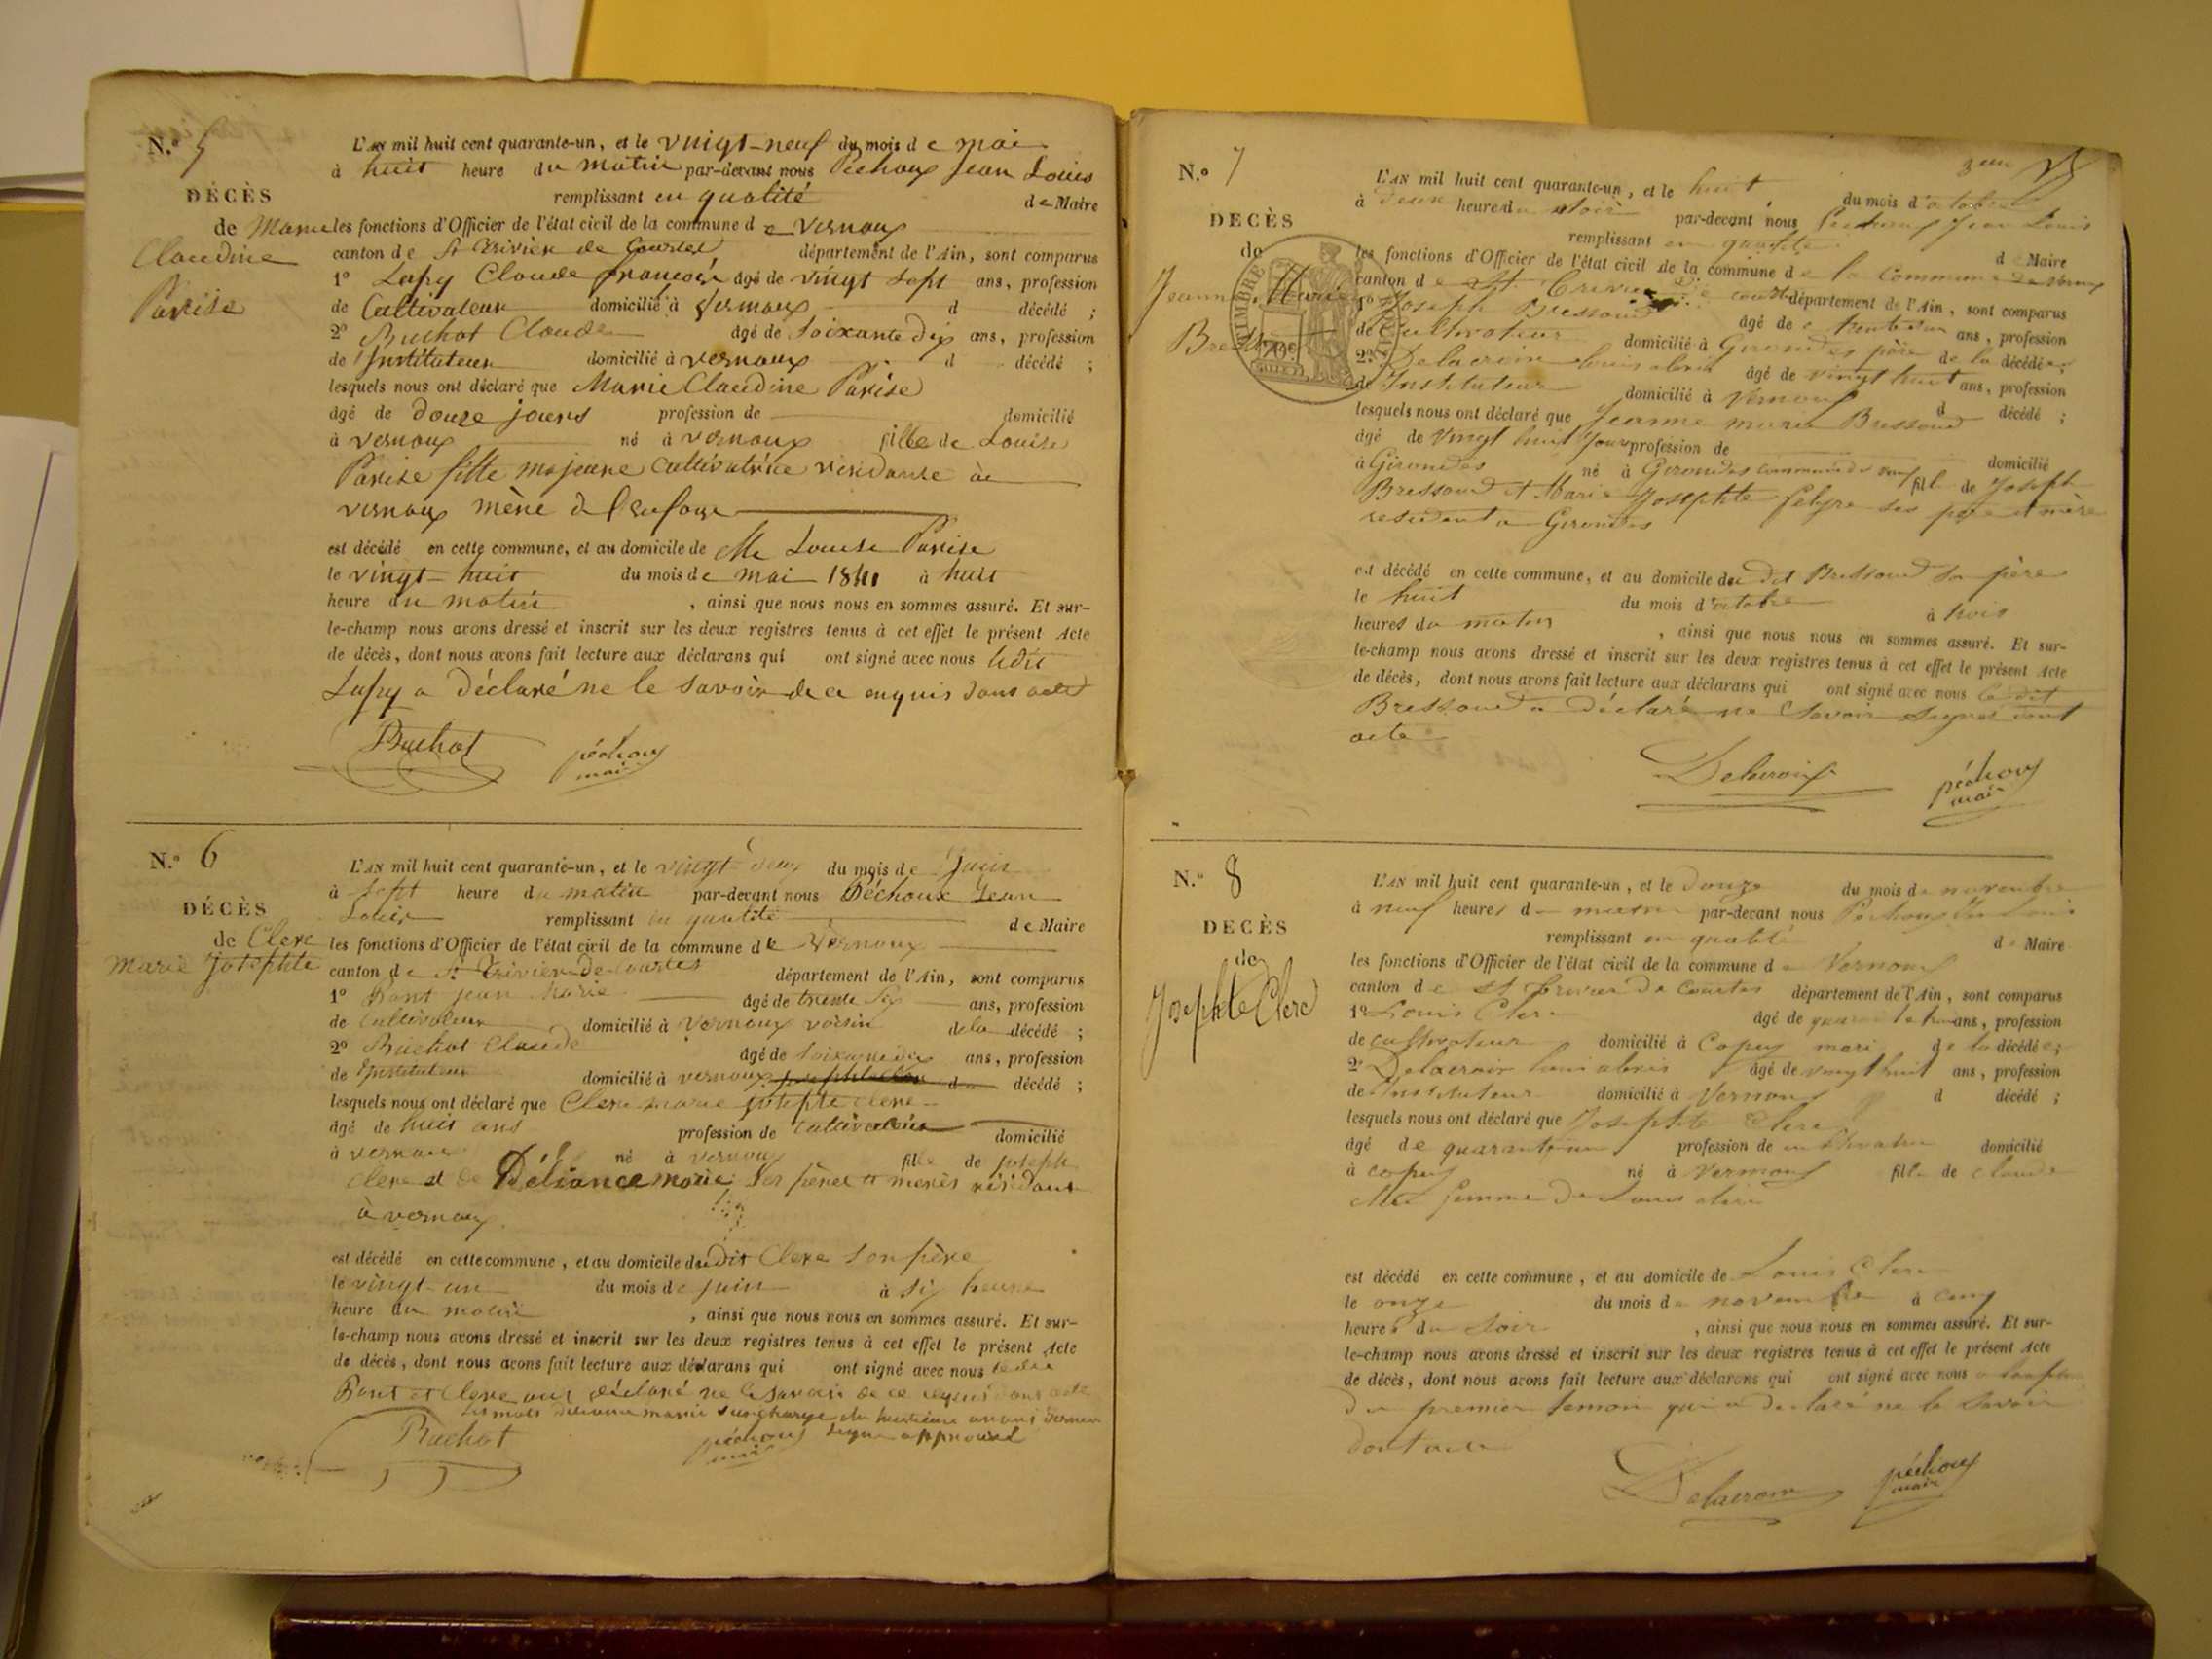 N.º 5
DÉCÈS
de Marie
Claudine
Parise
L'AN mil huit cent quarante-un, et le vingt-neuf du mois de mai
à huit heure du matin par-devant nous Péchoux Jean Louis
remplissant en qualité de Maire
les fonctions d'Officier de l'état civil de la commune de Vernoux
canton de St Trivier de Courtes département de l'Ain, sont comparus
1º Claude françois âgé de vingt sept ans, profession
de Cultivateur domicilié à Vernoux d décédé ;
2º Buchot Claude âgé de soixante dix ans, profession
de Instituteur domicilié à vernoux d décédé ;
lesquels nous ont déclaré que Marie Claudine Parise
âgé de douze jours profession de domicilié
à vernoux né à vernoux fille de Louise
Parise fille majeure cultivatrice résidante à
vernoux mère de l'enfant
est décédé en cette commune, et au domicile de Louise Parise
le vingt-huit du mois de mai 1841 à huit
heure du matin , ainsi que nous nous en sommes assuré. Et sur-
le-champ nous avons dressé et inscrit sur les deux registres tenus à cet effet le présent Acte
de décès, dont nous avons fait lecture aux déclarans qui ont signé avec nous ledit
a déclaré ne le savoir de ce enquis dont acte
Buchot péchoux
maire
N.º 6
DÉCÈS
de Clerc
Marie Josephte
L'AN mil huit cent quarante-un, et le vingt deux du mois de Juin
à sept heure du matin par-devant nous Péchoux Jean
Louis remplissant en qualité de Maire
les fonctions d'Officier de l'état civil de la commune de Vernoux
canton de St Trivier de Courtes département de l'Ain, sont comparus
1º jean Marie âgé de trente six ans, profession
de Cultivateur domicilié à Vernoux voisin de la décédé ;
2º Buchot Claude âgé de soixante dix ans, profession
de Instituteur domicilié à vernoux d décédé ;
lesquels nous ont déclaré que Clerc marie josephte clerc
âgé de huit ans profession de domicilié
à vernoux né à vernoux fille de joseph
clerc et de Déliance marie ses père et mère résidant
à vernoux
est décédé en cette commune, et au domicile dudit Clerc son père
le vingt-un du mois de juin à six heure
heure du matin , ainsi que nous nous en sommes assuré. Et sur-
le-champ nous avons dressé et inscrit sur les deux registres tenus à cet effet le présent Acte
de décès, dont nous avons fait lecture aux déclarans qui ont signé avec nous ledit
et Clerc ont déclaré ne le savoir de ce requis dont acte
les mots Déliance marie
Buchot péchoux ligne approuvé
maire
N.º 7
DECÈS
de
Jeanne Marie
Bressoud
TIMBRE
L'AN mil huit cent quarante-un, et le huit du mois d'octobre
à deux heures du soir par-devant nous Péchoux Jean Louis
remplissant en qualité de Maire
les fonctions d'Officier de l'état civil de la commune de la Commune de
canton de St Trivier de courtes département de l'Ain, sont comparus
1º Joseph Bressoud âgé de ans, profession
de Cultivateur domicilié à père de la décédée ;
2º Delacroix âgé de vingt huit ans, profession
de Instituteur domicilié à Vernoux d décédé ;
lesquels nous ont déclaré que Jeanne marie Bressoud
âgé de vingt huit jours profession de domicilié
à né à fille de Joseph
Bressoud et Marie Josephte ses père et mère
résidant à
est décédé en cette commune, et au domicile du dit Bressoud son père
le huit du mois d'octobre à trois
heures du matin , ainsi que nous nous en sommes assuré. Et sur-
le-champ nous avons dressé et inscrit sur les deux registres tenus à cet effet le présent Acte
de décès, dont nous avons fait lecture aux déclarans qui ont signé avec nous le dit
Bressoud a déclaré ne savoir signer dont
acte
Delacroix péchoux
maire
N.º 8
DECÈS
de
Josephte Clerc
L'AN mil huit cent quarante-un, et le douze du mois de novembre
à neuf heures du matin par-devant nous Péchoux Jn Louis
remplissant en qualité de Maire
les fonctions d'Officier de l'état civil de la commune de Vernoux
canton de St Trivier de Courtes département de l'Ain, sont comparus
1º Louis Clerc âgé de ans, profession
de cultivateur domicilié à mari de la décédée ;
2º Delacroix âgé de vingt huit ans, profession
de Instituteur domicilié à Vernoux d décédé ;
lesquels nous ont déclaré que Josephte Clerc
âgé de profession de domicilié
à né à Vernoux fille de claude
femme de Louis clerc
est décédé en cette commune, et au domicile de Louis Clerc
le onze du mois de novembre à cinq
heures du soir , ainsi que nous nous en sommes assuré. Et sur-
le-champ nous avons dressé et inscrit sur les deux registres tenus à cet effet le présent Acte
de décès, dont nous avons fait lecture aux déclarans qui ont signé avec nous
du premier témoin qui a déclaré ne le savoir
dont acte
Delacroix péchoux
maire